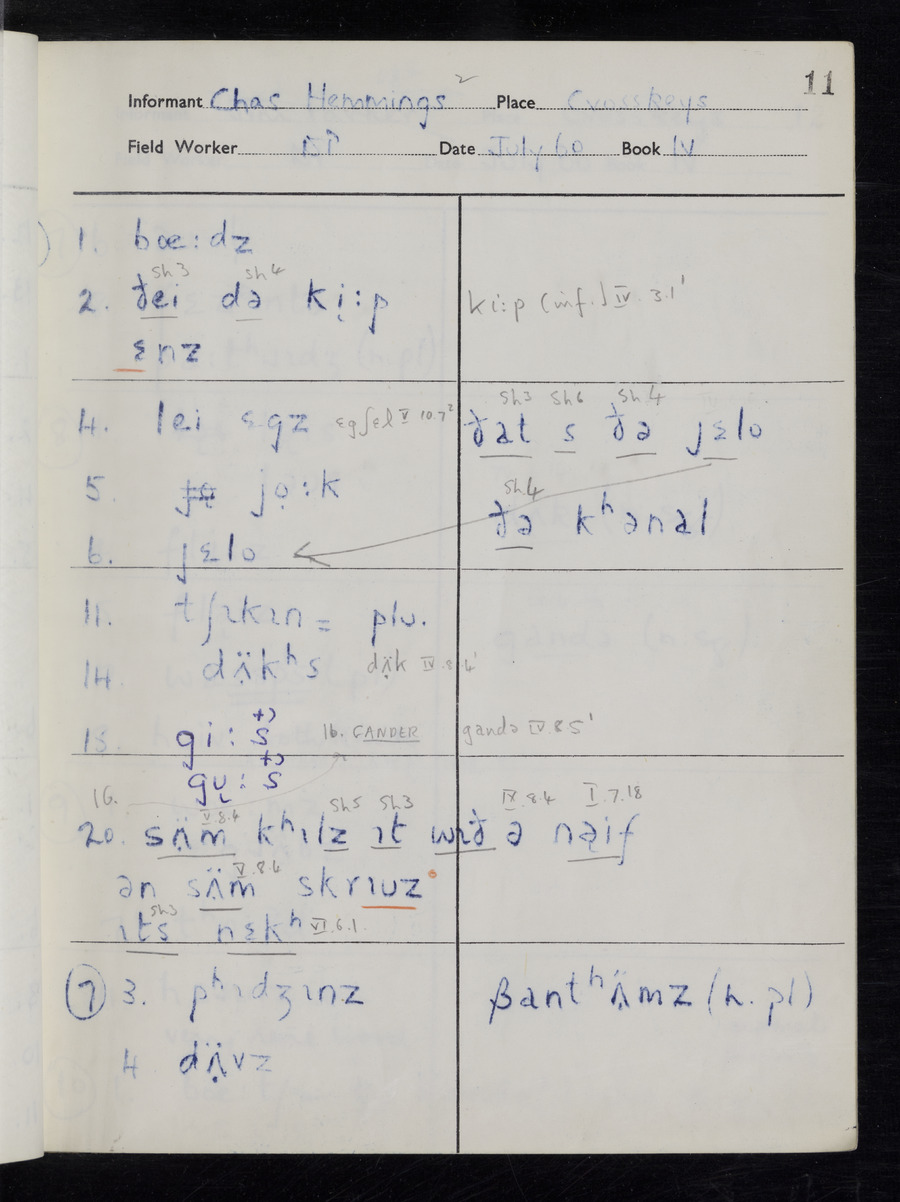 11
Informant Chas Hemmings 2 Place Crosskeys
Field Worker Date July 60 Book IV
1. bœ:dz
sh 3 sh 4
2. ðei də ki̩:p
ki:p (inf.) IV. 3.1'
ɛnz
4. lei ɛgz ɛgʃɛl V 10.7²
sh3 sh6 sh4
ðat s ðə jɛlo
5. jo̩:k
sh.4
ðə kʰənal
6. jɛlo
11. tʃɪkɪn = plu.
14. dʌ̩̈kʰs dʌ̩̈k IV.8.4'
15. gi:s 16. GANDER
gandə IV.8.5'
gṳ:s
16.
V.8.4 sh5 sh3 IX.8.4 I.7.18
20. sʌ̈m kʰɪlz ɪt wɪð ə nə̩if
V.8.4
ən sʌ̈m skrɪuz
sh3
ɪts nɛkʰ VI.6.1.
(7) 3. pʰɪdʒɪnz
βantʰʌ̈mz (h. pl)
4 dʌ̩̈vz